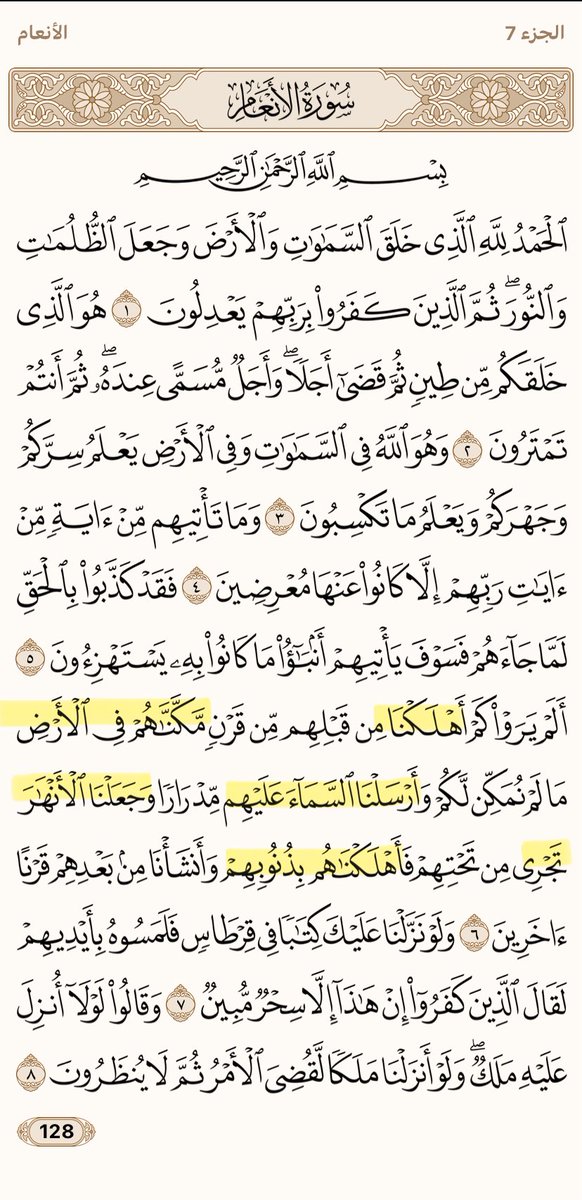 الجزء 7
الأنعام
سُورَةُ الأَنْعَامِ
بِسْمِ ٱللَّهِ ٱلرَّحْمَٰنِ ٱلرَّحِيمِ
ٱلْحَمْدُ لِلَّهِ ٱلَّذِى خَلَقَ ٱلسَّمَٰوَٰتِ وَٱلْأَرْضَ وَجَعَلَ ٱلظُّلُمَٰتِ
وَٱلنُّورَۖ ثُمَّ ٱلَّذِينَ كَفَرُوا۟ بِرَبِّهِمْ يَعْدِلُونَ ١ هُوَ ٱلَّذِى
خَلَقَكُم مِّن طِينٍ ثُمَّ قَضَىٰٓ أَجَلًاۖ وَأَجَلٌ مُّسَمًّى عِندَهُۥۖ ثُمَّ أَنتُمْ
تَمْتَرُونَ ٢ وَهُوَ ٱللَّهُ فِى ٱلسَّمَٰوَٰتِ وَفِى ٱلْأَرْضِ يَعْلَمُ سِرَّكُمْ
وَجَهْرَكُمْ وَيَعْلَمُ مَا تَكْسِبُونَ ٣ وَمَا تَأْتِيهِم مِّنْ ءَايَةٍ مِّنْ
ءَايَٰتِ رَبِّهِمْ إِلَّا كَانُوا۟ عَنْهَا مُعْرِضِينَ ٤ فَقَدْ كَذَّبُوا۟ بِٱلْحَقِّ
لَمَّا جَآءَهُمْ فَسَوْفَ يَأْتِيهِمْ أَنۢبَٰٓؤُا۟ مَا كَانُوا۟ بِهِۦ يَسْتَهْزِءُونَ ٥
أَلَمْ يَرَوْا۟ كَمْ أَهْلَكْنَا مِن قَبْلِهِم مِّن قَرْنٍ مَّكَّنَّٰهُمْ فِى ٱلْأَرْضِ
مَا لَمْ نُمَكِّن لَّكُمْ وَأَرْسَلْنَا ٱلسَّمَآءَ عَلَيْهِم مِّدْرَارًا وَجَعَلْنَا ٱلْأَنْهَٰرَ
تَجْرِى مِن تَحْتِهِمْ فَأَهْلَكْنَٰهُم بِذُنُوبِهِمْ وَأَنشَأْنَا مِنۢ بَعْدِهِمْ قَرْنًا
ءَاخَرِينَ ٦ وَلَوْ نَزَّلْنَا عَلَيْكَ كِتَٰبًا فِى قِرْطَاسٍ فَلَمَسُوهُ بِأَيْدِيهِمْ
لَقَالَ ٱلَّذِينَ كَفَرُوٓا۟ إِنْ هَٰذَآ إِلَّا سِحْرٌ مُّبِينٌ ٧ وَقَالُوا۟ لَوْلَآ أُنزِلَ
عَلَيْهِ مَلَكٌۖ وَلَوْ أَنزَلْنَا مَلَكًا لَّقُضِىَ ٱلْأَمْرُ ثُمَّ لَا يُنظَرُونَ ٨
128